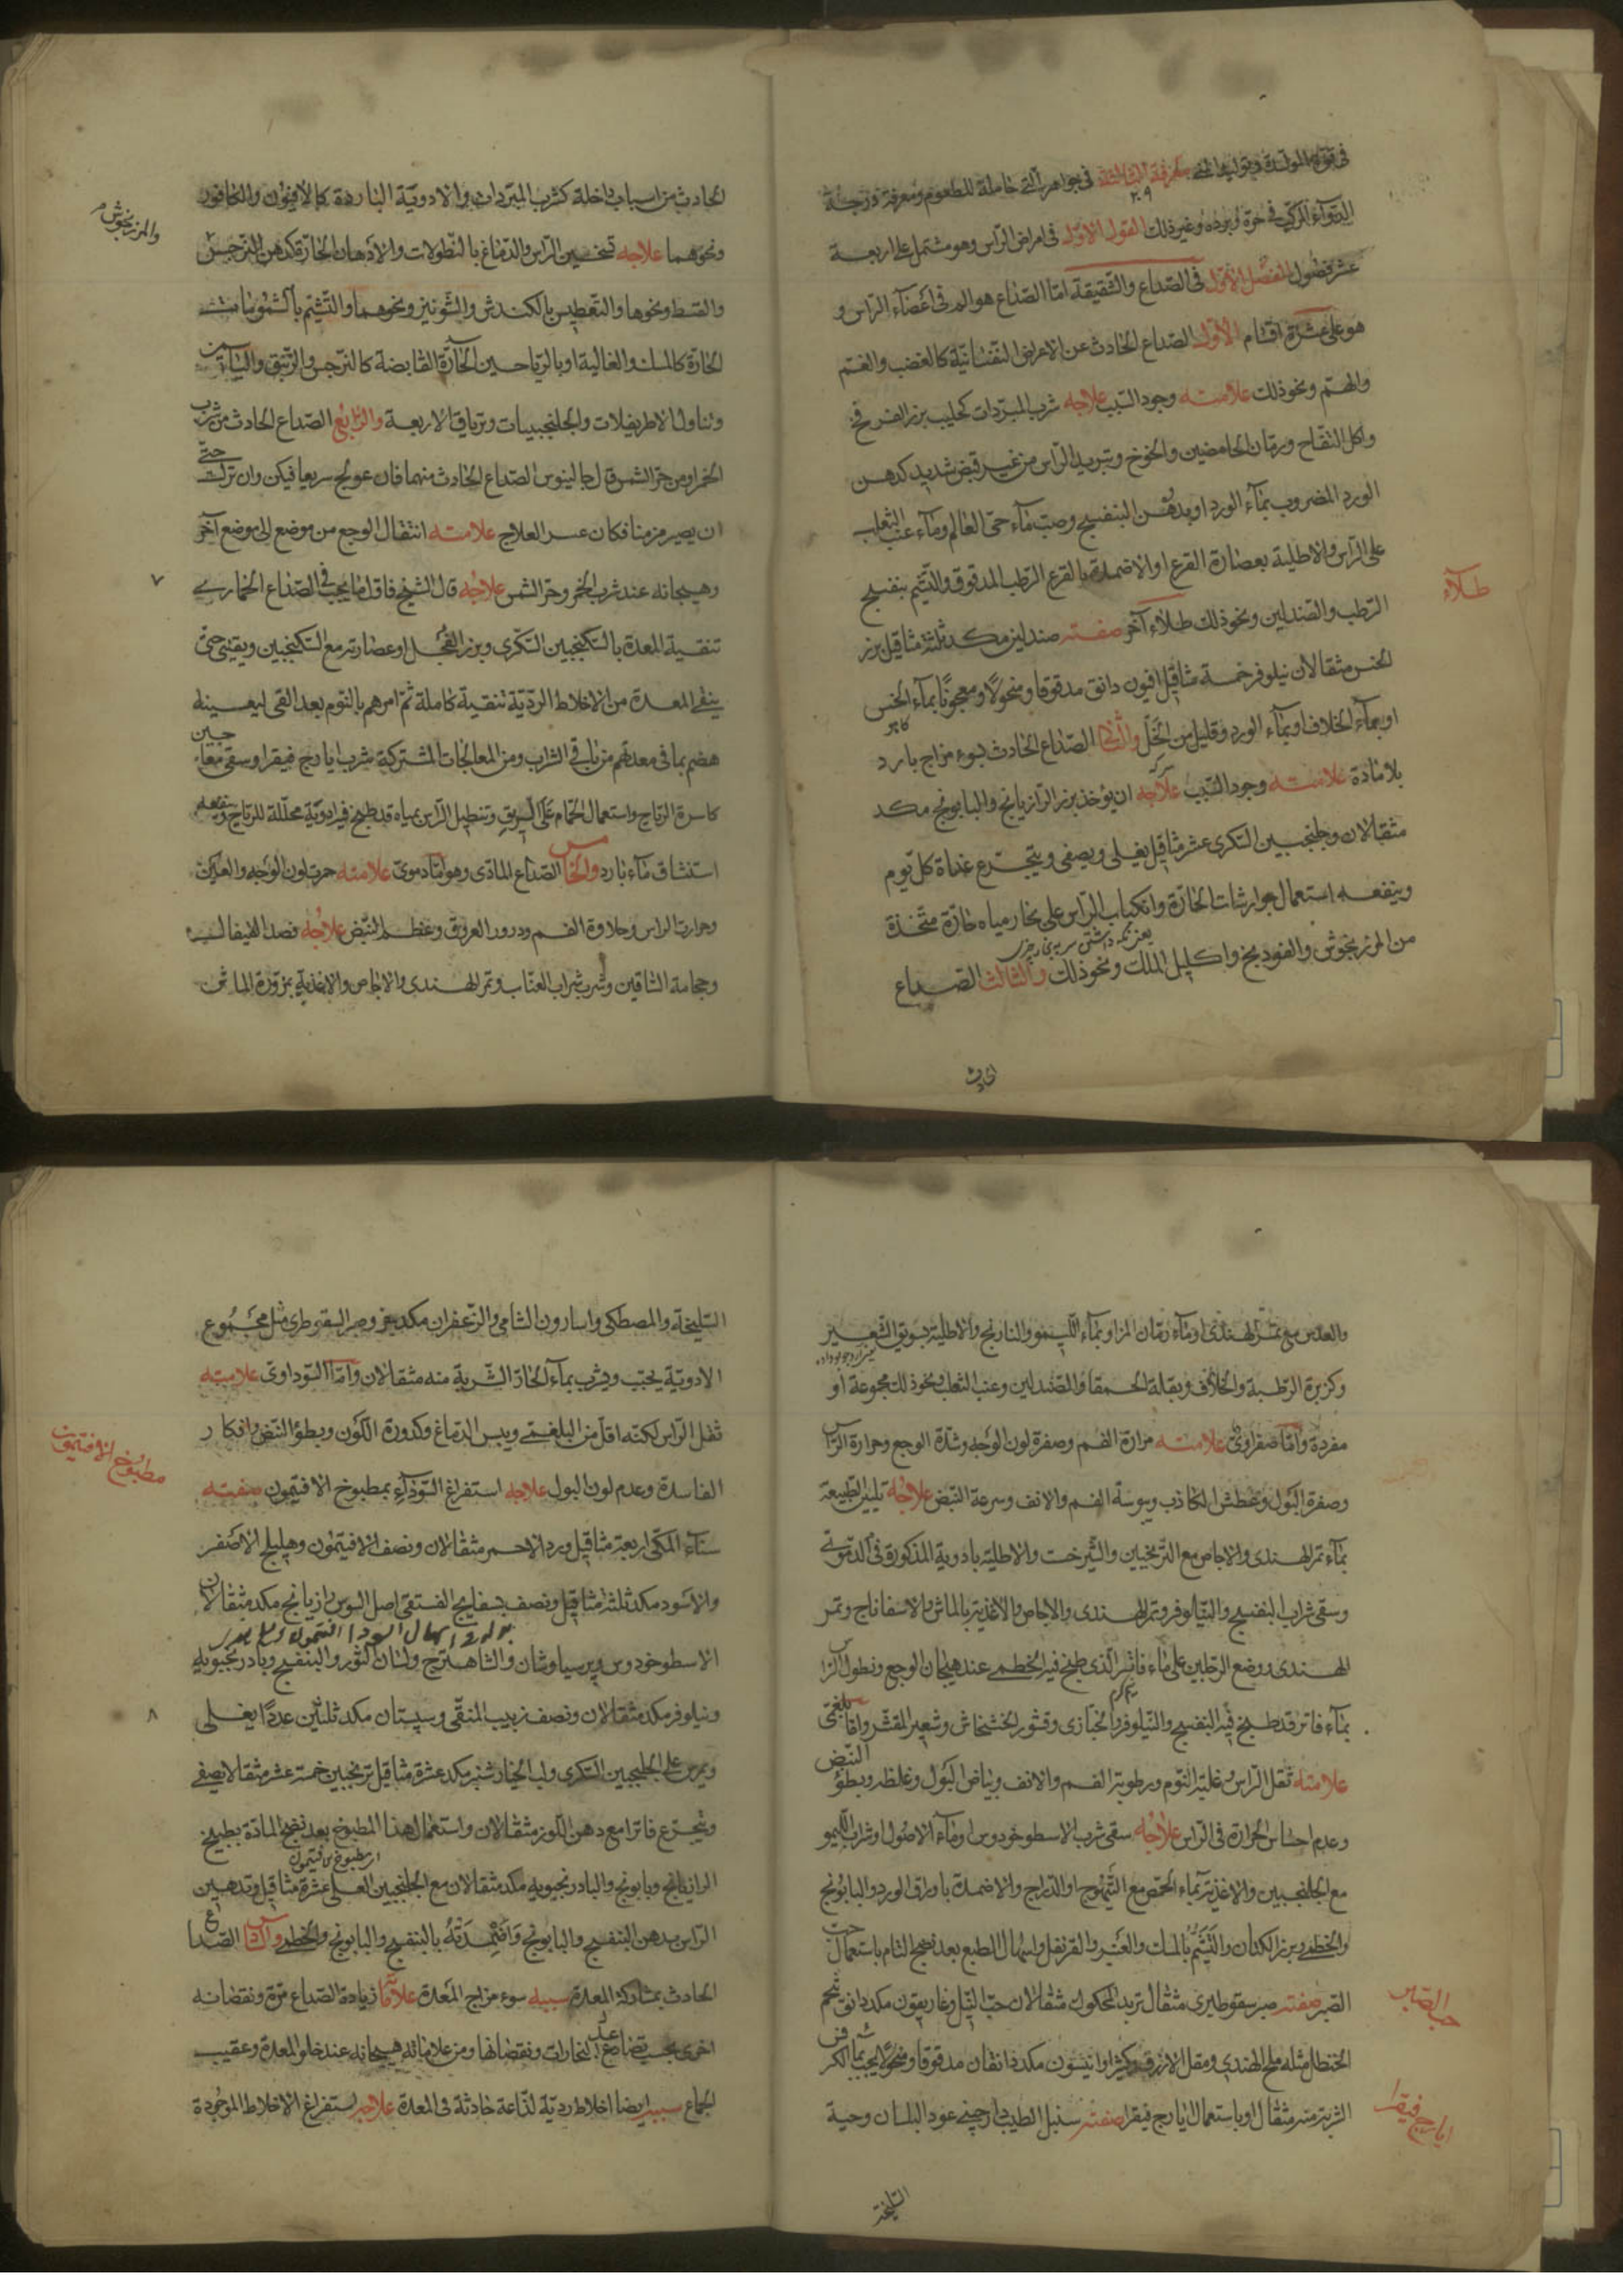 في امراض الراس وهو مشتمل على اربعة
عشر فصول الفصل الاول في الصداع والشقيقة اما الصداع هو الم في اعضاء الراس و
هو على عشرة اقسام الاول الصداع الحادث عن الاعراض النفسانية كالغضب والغم
والهم ونحو ذلك علامته وجود السبب علاجه شرب المبردات كحليب بزر الفرفخ
واكل التفاح ورمان الحامضين والخوخ وتبريد الراس من غير قبض شديد كدهن
الورد المضروب بماء الورد او بدهن البنفسج وصب ماء حي العالم وماء عنب الثعلب
على الراس والاطلية بعصارة القرع او الاضمدة بالقرع الرطب المدقوق والتشمم بنفسج
طلاء
الرطب والصندلين ونحو ذلك طلاء آخر صفته صندلين مكد ثلثة مثاقيل بزر
الخس مثقالان نيلوفر خمسة مثاقيل افيون دانق مدقوقا ومنخولا ومعجونا بماء الخس
او بماء الخلاف او بماء الورد وقليل من الخل والثاني الصداع الحادث بسوء مزاج بارد
بلا مادة علامته وجود السبب علاجه ان يؤخذ بزر الرازيانج والبابونج مكد
مثقالان وجلنجبين السكري عشر مثاقيل يغلى ويصفى ويتجرع غداة كل يوم
وينفعه استعمال جوارشات الحارة وانكباب الراس على بخار مياه حارة متخذة
من المرزنجوش والفودنج واكليل الملك ونحو ذلك والثالث الصداع
الحادث من اسباب داخلة كشرب المبردات والادوية الباردة كالافيون والكافور
ونحوهما علاجه تسخين الراس والدماغ بالنطولات والادهان الحارة كدهن النرجس
والمرزنجوش
والقسط ونحوها والتعطيس بالكندش والشونيز ونحوهما والتشمم بالشمومات
الحارة كالمسك والغالية او بالرياحين الحارة القابضة كالنرجس والزنبق والياسمن
وتناول الاطريفلات والجلنجبينات وترياق الاربعة والرابع الصداع الحادث من شرب
الخمر او من حر الشمس قال جالينوس الصداع الحادث منهما فان عولج سريعا فيكن وان ترك حتى
ان يصير مزمنا فكان عسر العلاج علامته انتقال الوجع من موضع الى موضع آخر
وهيجانه عند شرب الخمر وحر الشمس علاجه قال الشيخ فاقل ما يجب في الصداع الخماري
٧
تنقية المعدة بالسكنجبين السكري وبزر الفجل او عصارته مع السكنجبين ويقيئ حتى
ينقى المعدة من الاخلاط الردية تنقية كاملة ثم امرهم بالنوم بعد القي ليعينه
هضم بما في معدتهم من باقي الشراب ومن المعالجات المشتركة شرب ايارج فيقرا وسقى
كاسرة الرياح واستعمال الحمام على الريق وتنطيل الراس بمياه قد طبخ فيه ادوية محللة للرياح وينفعه
استنشاق ماء بارد والخامس الصداع المادي وهو اما دموي علامته حمرت لون الوجه والعين
وحرارت الراس وحلاوة الفم ودرور العروق وعظم النبض علاجه فصد القيفال
وحجامة الساقين وشرب شراب العناب وتمر الهندي والاجاص والاغذية بمزورة الماش
والعدس مع تمر الهندي او ماء رمان المز او بماء الليمو والنارنج والاطلية بسويق الشعير
وكزبرة الرطبة والخلاف وبقلة الحمقاء والصندلين وعنب الثعلب ونحو ذلك مجموعة او
مفردة واما صفراوي علامته مرارة الفم وصفرة لون الوجه وشدة الوجع وحرارة الراس
وصفرة البول وعطش الكاذب ويبوسة الفم والانف وسرعة النبض علاجه تليين الطبيعة
بماء تمر الهندي والاجاص مع الترنجبين والشيرخشت والاطلية بادوية المذكورة في الدموي
وسقى شراب البنفسج والنيلوفر وتمر الهندي والاجاص والاغذية بالماش والاسفاناج وتمر
الهندي ووضع الرجلين على ماء فاتر الذي طبخ فيه الخطمى عند هيجان الوجع ونطول الراس
بماء فاتر قد طبخ فيه البنفسج والنيلوفر والخبازى وقشور الخشخاش وشعير المقشر واما بلغمي
علامته ثقل الراس وغلبة النوم ورطوبة الفم والانف وبياض البول وغلظه وبطؤ النبض
وعدم احساس الحرارة في الراس علاجه سقى شرب الاسطوخودوس او ماء الاصول او شراب الليمو
مع الجلنجبين والاغذية بماء الحمص مع التيهوج او الدراج والاضمدة باوراق الورد والبابونج
والخطمى وبزر الكتان والتشمم بالمسك والعنبر والقرنفل واسهال الطبع بعد نضج التام باستعمال حب
الصبر صفته صبر سقوطيرى مثقال تربد المحكوك مثقالان حب النيل وغاريقون مكد دانق شحم
حب الصبر
الحنظل مثله ملح الهندي ومقل الازرق وكثيرا وانيسون مكد دانقان مدقوقا ومنخولا يحبب بماء الكرفس
الشربة منه مثقال او باستعمال ايارج فيقرا صفته سنبل الطيب دارچيني عود البلسان وحبة
ايارج فيقرا
السليخة
السليخة والمصطكى واسارون الشامي والزعفران مكد جزو وصبر السقوطرى مثل مجموع
الادوية يحبب ويشرب بماء الحار الشربة منه مثقالان واما السوداوي علامته
ثقل الراس لكنه اقل من البلغمي ويبس الدماغ وكدورة اللون وبطؤ النبض وافكار
مطبوخ الافتيمون
الفاسدة وعدم لون البول علاجه استفراغ السوداء بمطبوخ الافتيمون صفته
سناء المكي اربعة مثاقيل ورد الاحمر مثقالان ونصف الافتيمون وهليلج الاصفر
والاسود مكد ثلثة مثاقيل ونصف بسفايج الفستقي اصل السوس رازيانج مكد مثقالان
الاسطوخودوس پرسياوشان والشاهترج ولسان الثور والبنفسج وبادرنجبويه
ونيلوفر مكد مثقالان ونصف زبيب المنقى وسپستان مكد ثلثين عددا يغلى
٨
ويمرس على الجلنجبين السكري ولب الخيارشنبر مكد عشرة مثاقيل ترنجبين خمسة عشر مثقالا يصفى
ويتجرع فاترا مع دهن اللوز مثقالان واستعمال هذا المطبوخ بعد نضج المادة بطبيخ
الرازيانج وبابونج والبادرنجبويه مكد مثقالان مع الجلنجبين العسلي عشرة مثاقيل وتدهين
الراس بدهن البنفسج والبابونج وبالبنفسج والبابونج والخطمى والسادس الصداع
الحادث بمشاركة المعدة سببه سوء مزاج المعدة علامته زيادة الصداع مرة ونقصانه
اخرى بحسب تصاعد البخارات ونقصانها ومن علاماته هيجانه عند خلو المعدة وعقيب
الجماع سببه ايضا اخلاط ردية لذاعة حادثة في المعدة علاجه استفراغ الاخلاط الموجودة